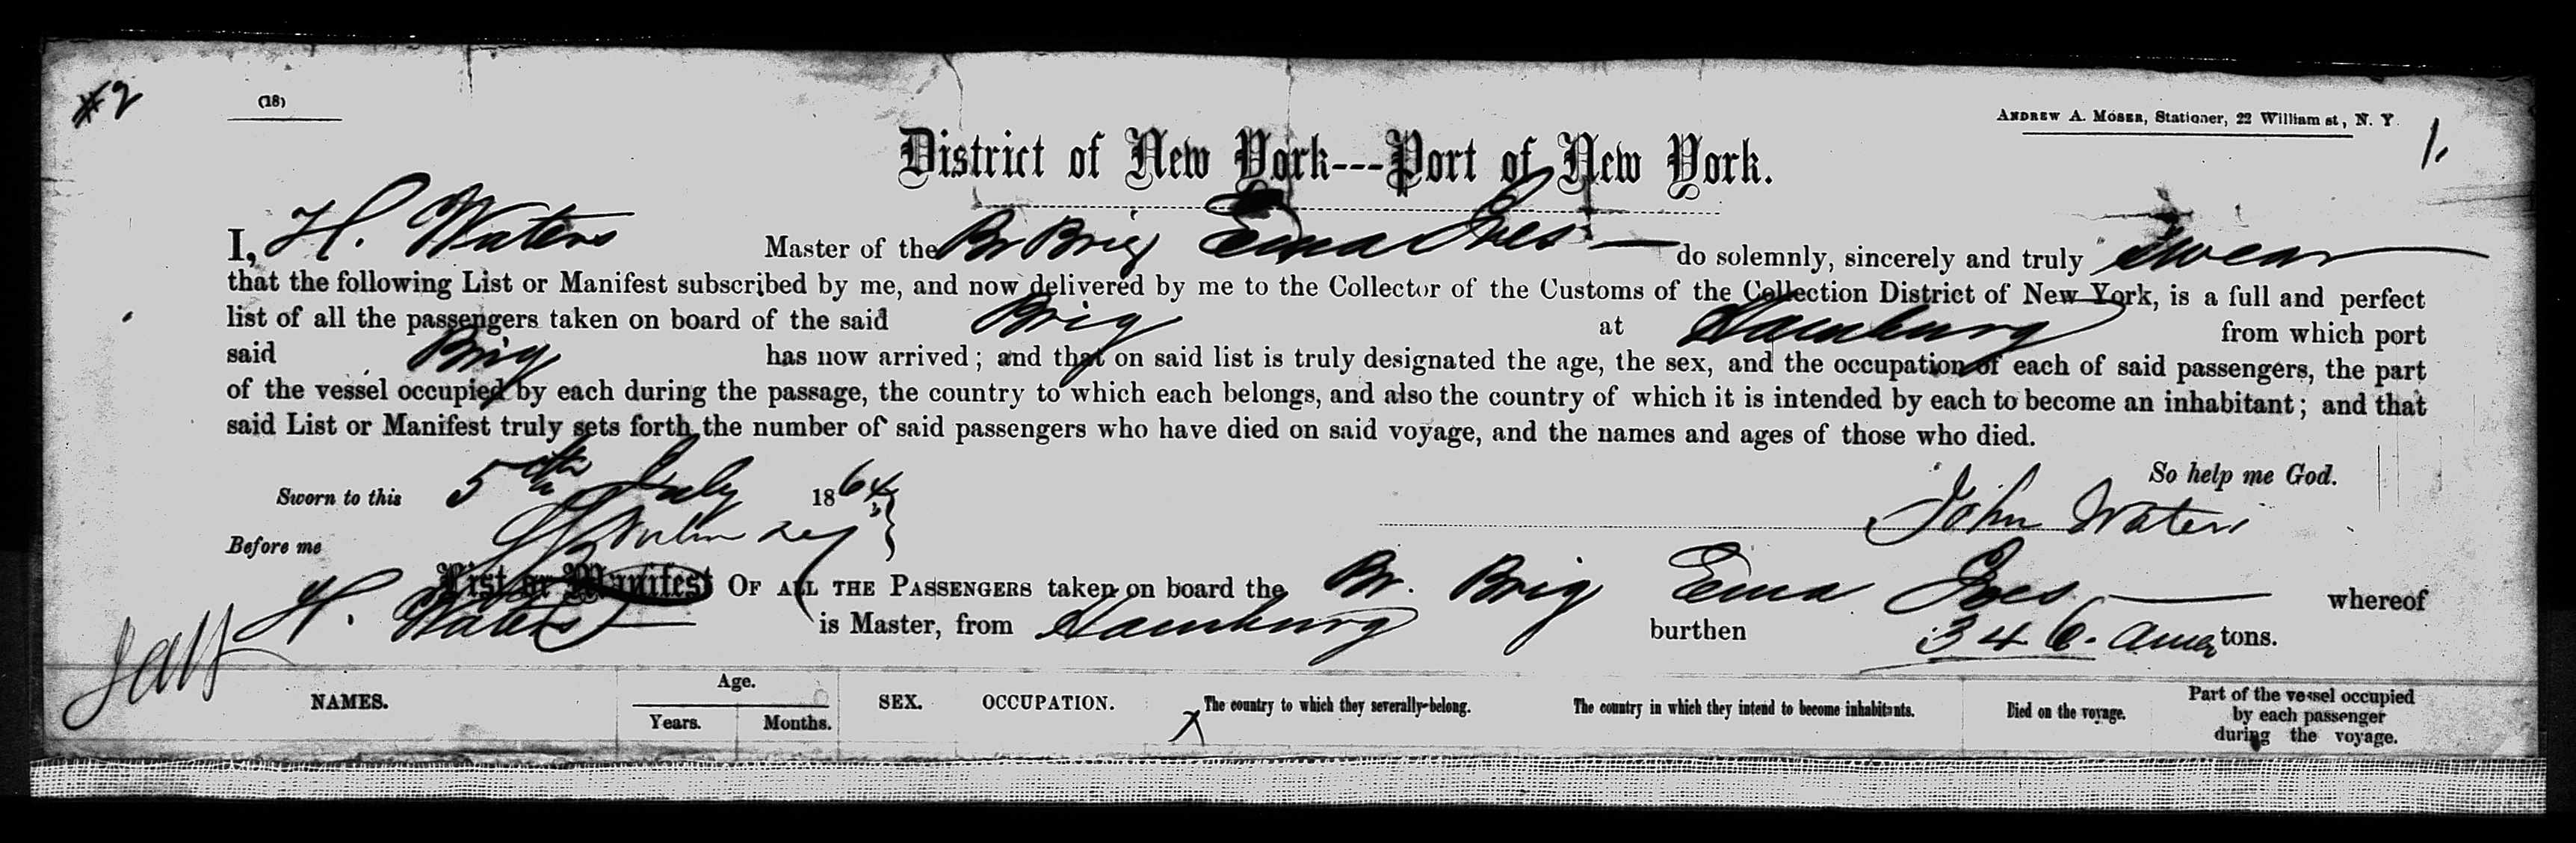 #2
(18)
ANDREW A. MOSER, Stationer, 22 William st., N. Y.
1.
District of New York---Port of New York.
I, H. Waters Master of the Br Brig Ema Ives — do solemnly, sincerely and truly swear
that the following List or Manifest subscribed by me, and now delivered by me to the Collector of the Customs of the Collection District of New York, is a full and perfect
list of all the passengers taken on board of the said Brig at Hamburg from which port
said Brig has now arrived; and that on said list is truly designated the age, the sex, and the occupation of each of said passengers, the part
of the vessel occupied by each during the passage, the country to which each belongs, and also the country of which it is intended by each to become an inhabitant; and that
said List or Manifest truly sets forth the number of said passengers who have died on said voyage, and the names and ages of those who died.
So help me God.
Sworn to this 5th July 1864
John Waters
Before me
List or Manifest OF ALL THE PASSENGERS taken on board the Br. Brig Ema Ives — whereof
H. Waters — is Master, from Hamburg burthen 346. tons.
NAMES. Age. Years. Months. SEX. OCCUPATION. The country to which they severally belong. The country in which they intend to become inhabitants. Died on the voyage. Part of the vessel occupied by each passenger during the voyage.
X